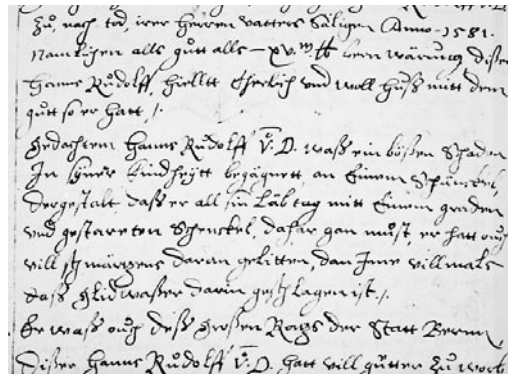 Zů, nach tod, irer Herren vatters Säligen Anno - 1581.
Namlichen alls gůtt alls - xv.m lb bern wärung, diser
Hanns Růdolff, hielltt Eherlich vnd woll Huß mitt dem
gůtt so er hatt /.
Gedachtem Hanns Růdolff V. D. waß ein bößen Schaden
In syner kindheytt begägnett an Einem Schünckel,
dergestalt daß er all sin läbtag mitt Einem graden
vnd gestareten Schenckel, dahar gan můst, er hatt ouch
vill schmärtzens daran gelitten, dan Ime villmals
daß glidwaßer darin geschlagen ist /.
Er waß ouch deß großen Rahts der Statt Bernn
Dißer Hanns Růdolff V. D. hatt vill gütter Zů